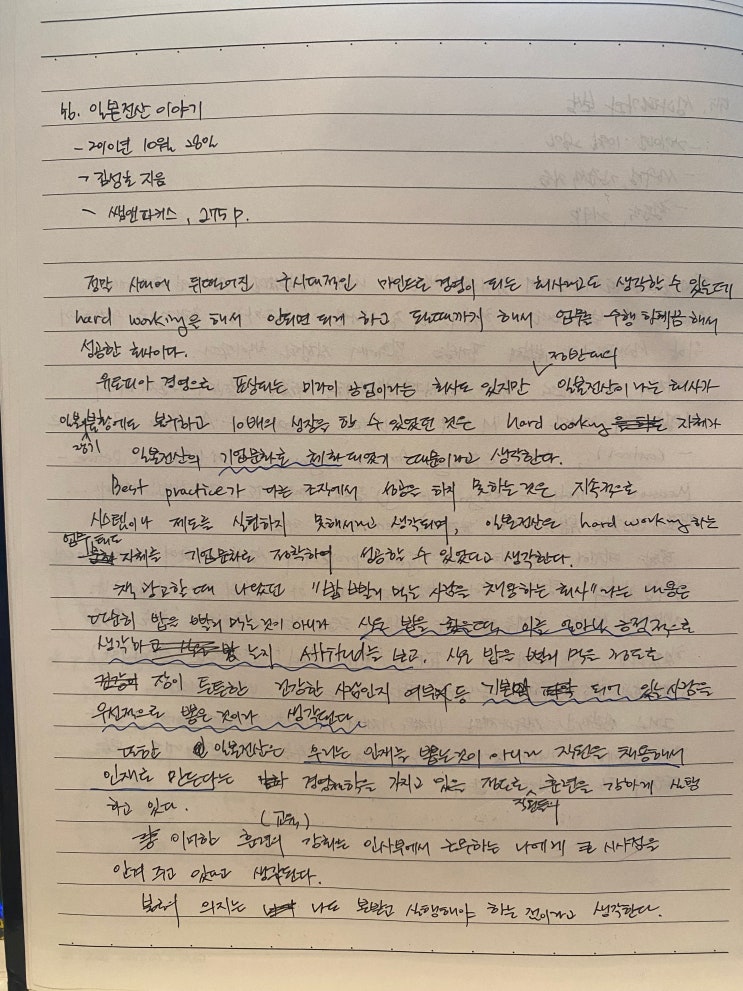 46. 일본전산 이야기
- 2010년 10월 28일
- 김성호 지음
- 쌤앤파커스, 275 p.
정말 시대에 뒤떨어진 구시대적인 마인드로 경영이 되는 회사라고도 생각할 수 있는데
hard working을 해서 안되면 되게 하고 될때까지 해서 업무를 수행 함께끔 해서
성공한 회사이다.
유토피아 경영으로 표상되는 미라이 공업이라는 회사도 있지만 정반대의 일본전산이라는 회사가
일본 불황에도 불구하고 10배의 성장을 할 수 있었던 것은 hard working 자체가
장기
일본전산의 기업문화로 정착되었기 때문이라고 생각한다.
Best practice가 다른 조직에서 성공을 하지 못하는 것은 지속적으로
시스템이나 제도를 실현하지 못해서라고 생각되며, 일본전산은 hard working하는
업무 태도 자체를 기업문화로 정착하여 성공할 수 있었다고 생각한다.
책 광고할 때 나왔던 "밥 빨리 먹는 사람을 채용하는 회사"라는 내용은
단순히 밥을 빨리 먹는것이 아니라 식은 밥을 줬을때, 이를 얼마나 긍정적으로
생각하는지 attitude를 보고, 식은 밥을 빨리 먹을 정도로
장이 튼튼한 건강한 사람인지 여부 등 기본이 되어 있는 사람을
우선적으로 뽑은 것이라 생각된다.
또한 일본전산은 우리는 인재를 뽑는것이 아니라 직원을 채용해서
인재로 만든다는 경영철학을 가지고 있을 정도로, 직원들의 훈련을 강하게 실행
하고 있다.
이러한 훈련(교육)의 강화는 인사부에서 근무하는 나에게 큰 시사점을
안겨 주고 있다고 생각된다.
의지는 나도 본받고 실행해야 하는 것이라고 생각한다.